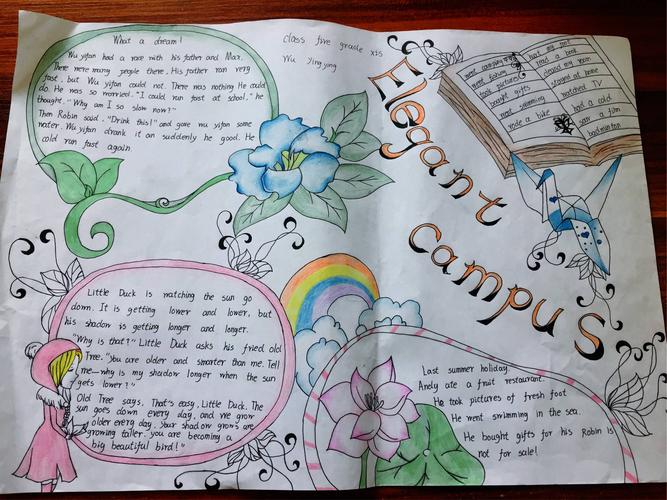 What a dream!
Wu yifan had a race with his father and Max.
There were many people there. His father ran very
fast, but Wu yifan could not. There was nothing He could
do. He was so worried. "I could run fast at school," he
thought. "Why am I so slow now?"
Then Robin said. "Drink this!" and gave wu yifan some
water. Wu yifan drank it an suddenly he good. He
cold run fast again.
class five grade x15
Wu ying ying
Elegant
campus
went camping
went fishing
took pictures
bought gifts
went swimming
rode a bike
hurt my foot
read a book
cleand my room
stayed at home
watched TV
had a cold
saw a film
badminton
Little Duck is watching the sun go
down. It is getting lower and lower, but
his shadow is getting longer and longer.
"Why is that?" Little Duck asks his fried old
Tree. "You are older and smarter than me. Tell
me—why is my shadow longer when the sun
gets lower?"
Old Tree says. That's easy, Little Duck. The
sun goes down every day, and we grow
older every day. Your shadow grows are
growing taller. you are becoming a
big beautiful bird!"
Last summer holiday.
Andy ate a fruit restaurant.
He took pictures of fresh foot
He went swimming in the sea.
He bought gifts for his Robin is
not for sale!